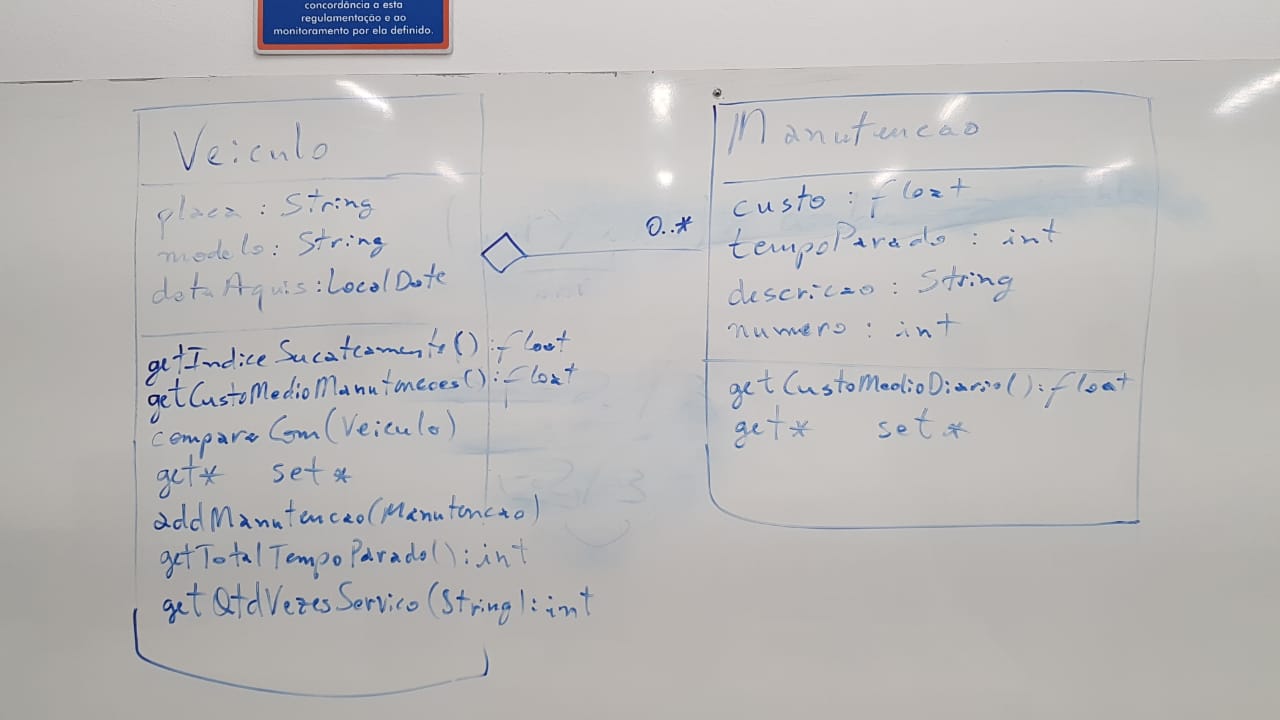 concordância a esta
regulamentação e ao
monitoramento por ela definido.
Veiculo
placa : String
modelo : String
dataAquis : LocalDate
getIndiceSucateamento() : float
getCustoMedioManutencoes() : float
compararCom(Veiculo)
get* set*
addManutencao(Manutencao)
getTotalTempoParado() : int
getQtdVezesServico(String) : int
0..*
Manutencao
custo : float
tempoParado : int
descricao : String
numero : int
getCustoMedioDiario() : float
get* set*